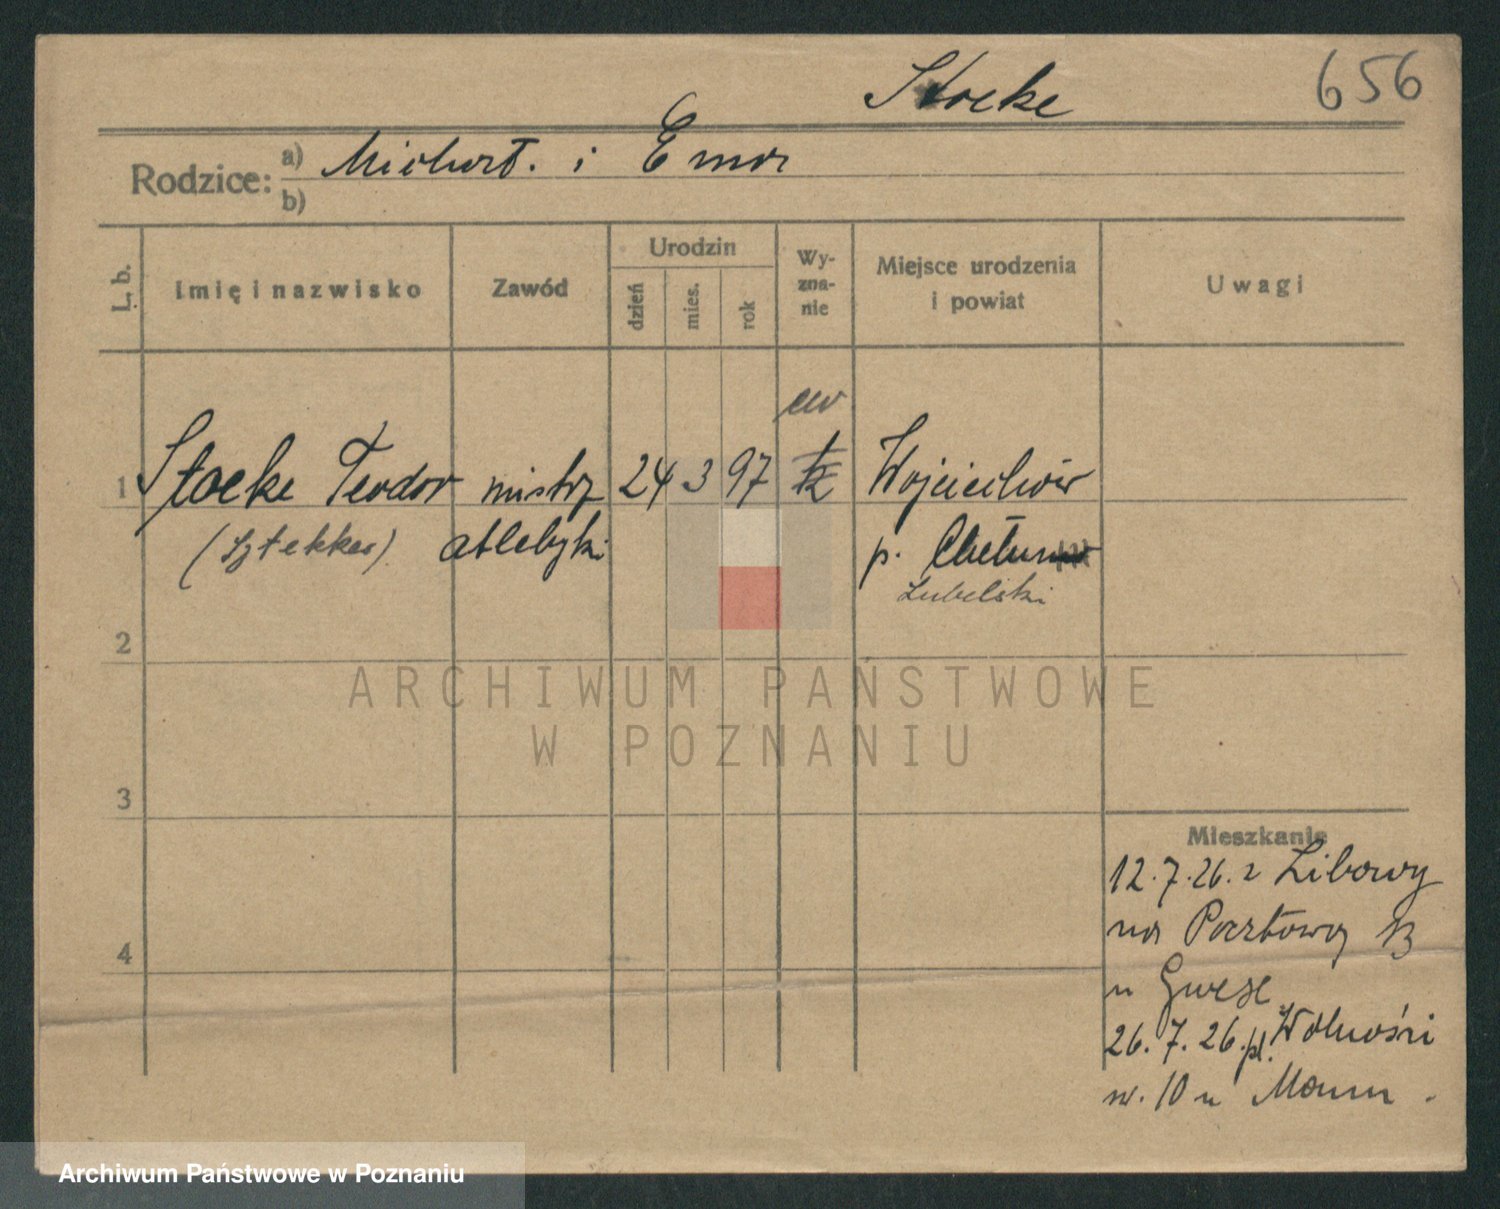 Stocke
656
Rodzice:
a) Michał. i Ema
b)
L. b.
Imię i nazwisko
Zawód
Urodzin
dzień
mies.
rok
Wy-
zna-
nie
Miejsce urodzenia
i powiat
Uwagi
ew
1 Stocke Teodor mistrz 24 3 97 Wojciechów
(Sztekker) atletyki p. Chełm
Lubelski
2
3
4
ARCHIWUM PAŃSTWOWE
W POZNANIU
Mieszkanie
12.7.26. z Libawy
na Pocztową 13
u
26.7.26. pl. Wolności
nr. 10 u
Archiwum Państwowe w Poznaniu